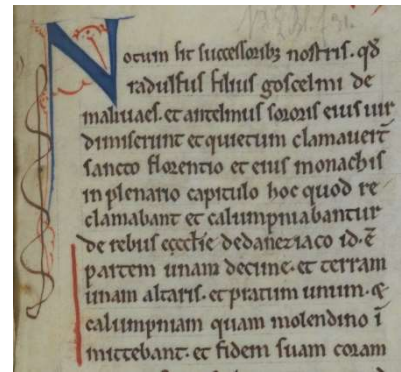 Notum sit successoribꝫ nostris. qđ
radulfus filius goscelini de
maluaes. et antelmus sororis eius uir
dimiserunt et quietum clamauer̄t
sancto florentio et eius monachis
in plenario capitulo hoc quod re
clamabant et calumpniabantur
de rebus ęcclie dedaneziaco id. ē
partem unam decime. et terram
unam altaris. et pratum unum. &
calumpniam quam molendino ī
mittebant. et fidem suam coram